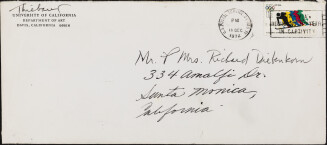 Thiebaud
UNIVERSITY OF CALIFORNIA
DEPARTMENT OF ART
DAVIS, CALIFORNIA 95616
PM
IN CAPTIVITY
Mr. & Mrs. Richard Diebenkorn
334 Amalfi Dr.
Santa Monica,
California